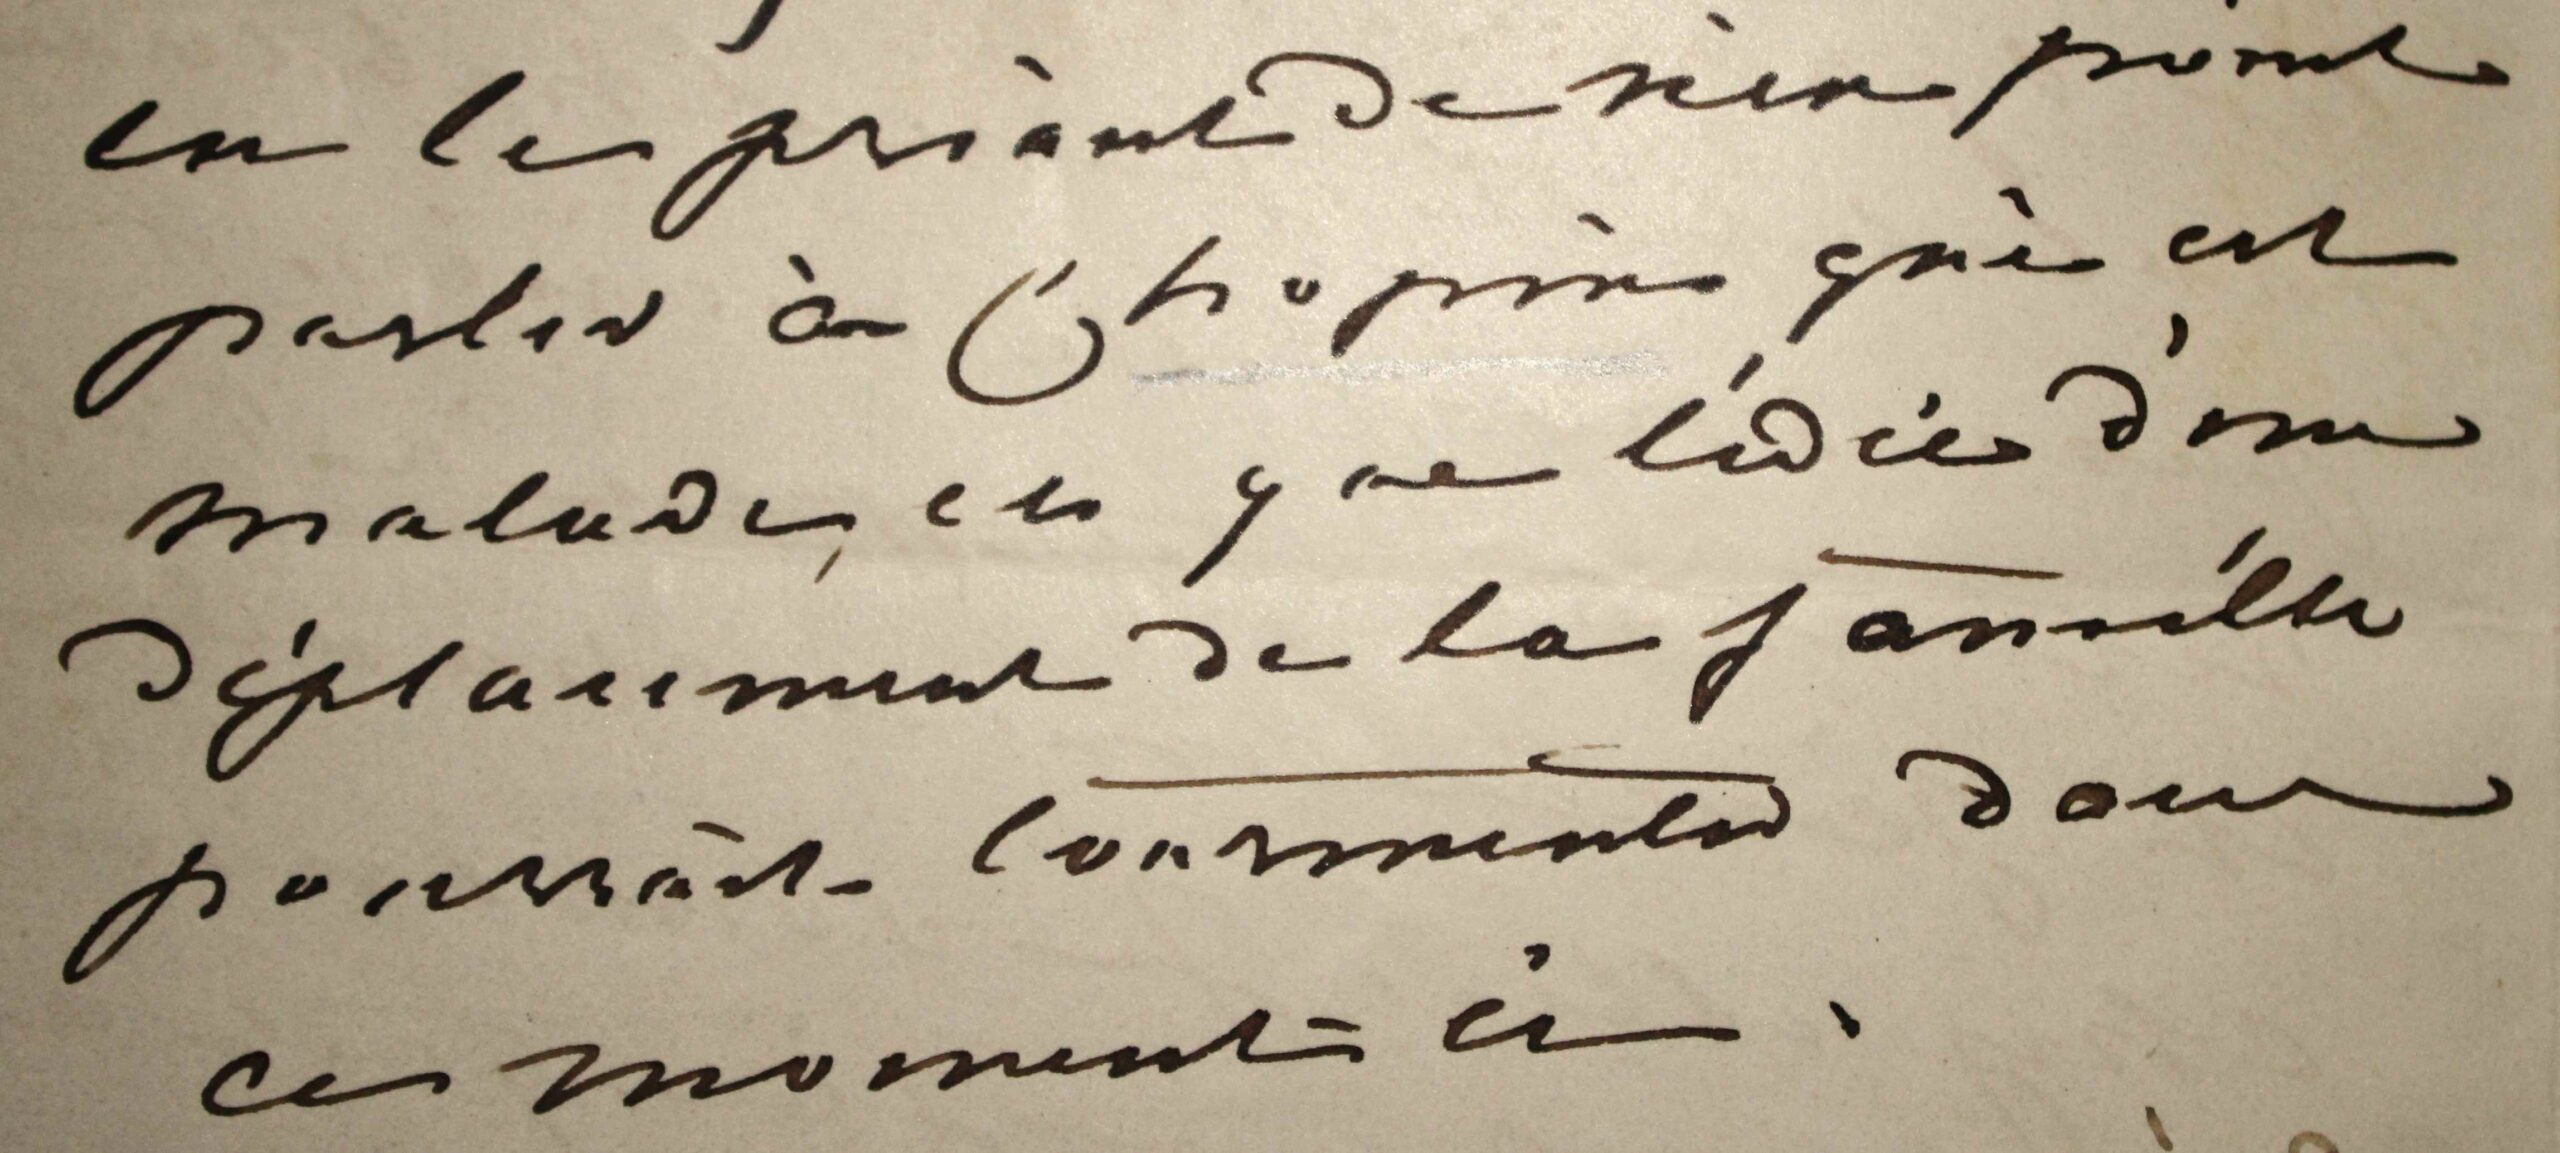 en les priant de n'en point
parler à Chopin qui est
malade, et que l'idée d'un
déplacement de la famille
pourrait tourmenter dans
ces moments ci.